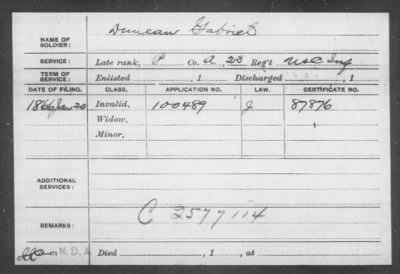 NAME OF SOLDIER: Duncan Gabriel
SERVICE: Late rank, P Co. A 23 Reg't U S C Inf
TERM OF SERVICE: Enlisted , 1 Discharged , 1
DATE OF FILING. CLASS. APPLICATION NO. LAW. CERTIFICATE NO.
1866 Jan 20 Invalid, 100489 J 87876
Widow,
Minor,
ADDITIONAL SERVICES:
C 2577114
REMARKS:
N.D.A. Died , 1 , at